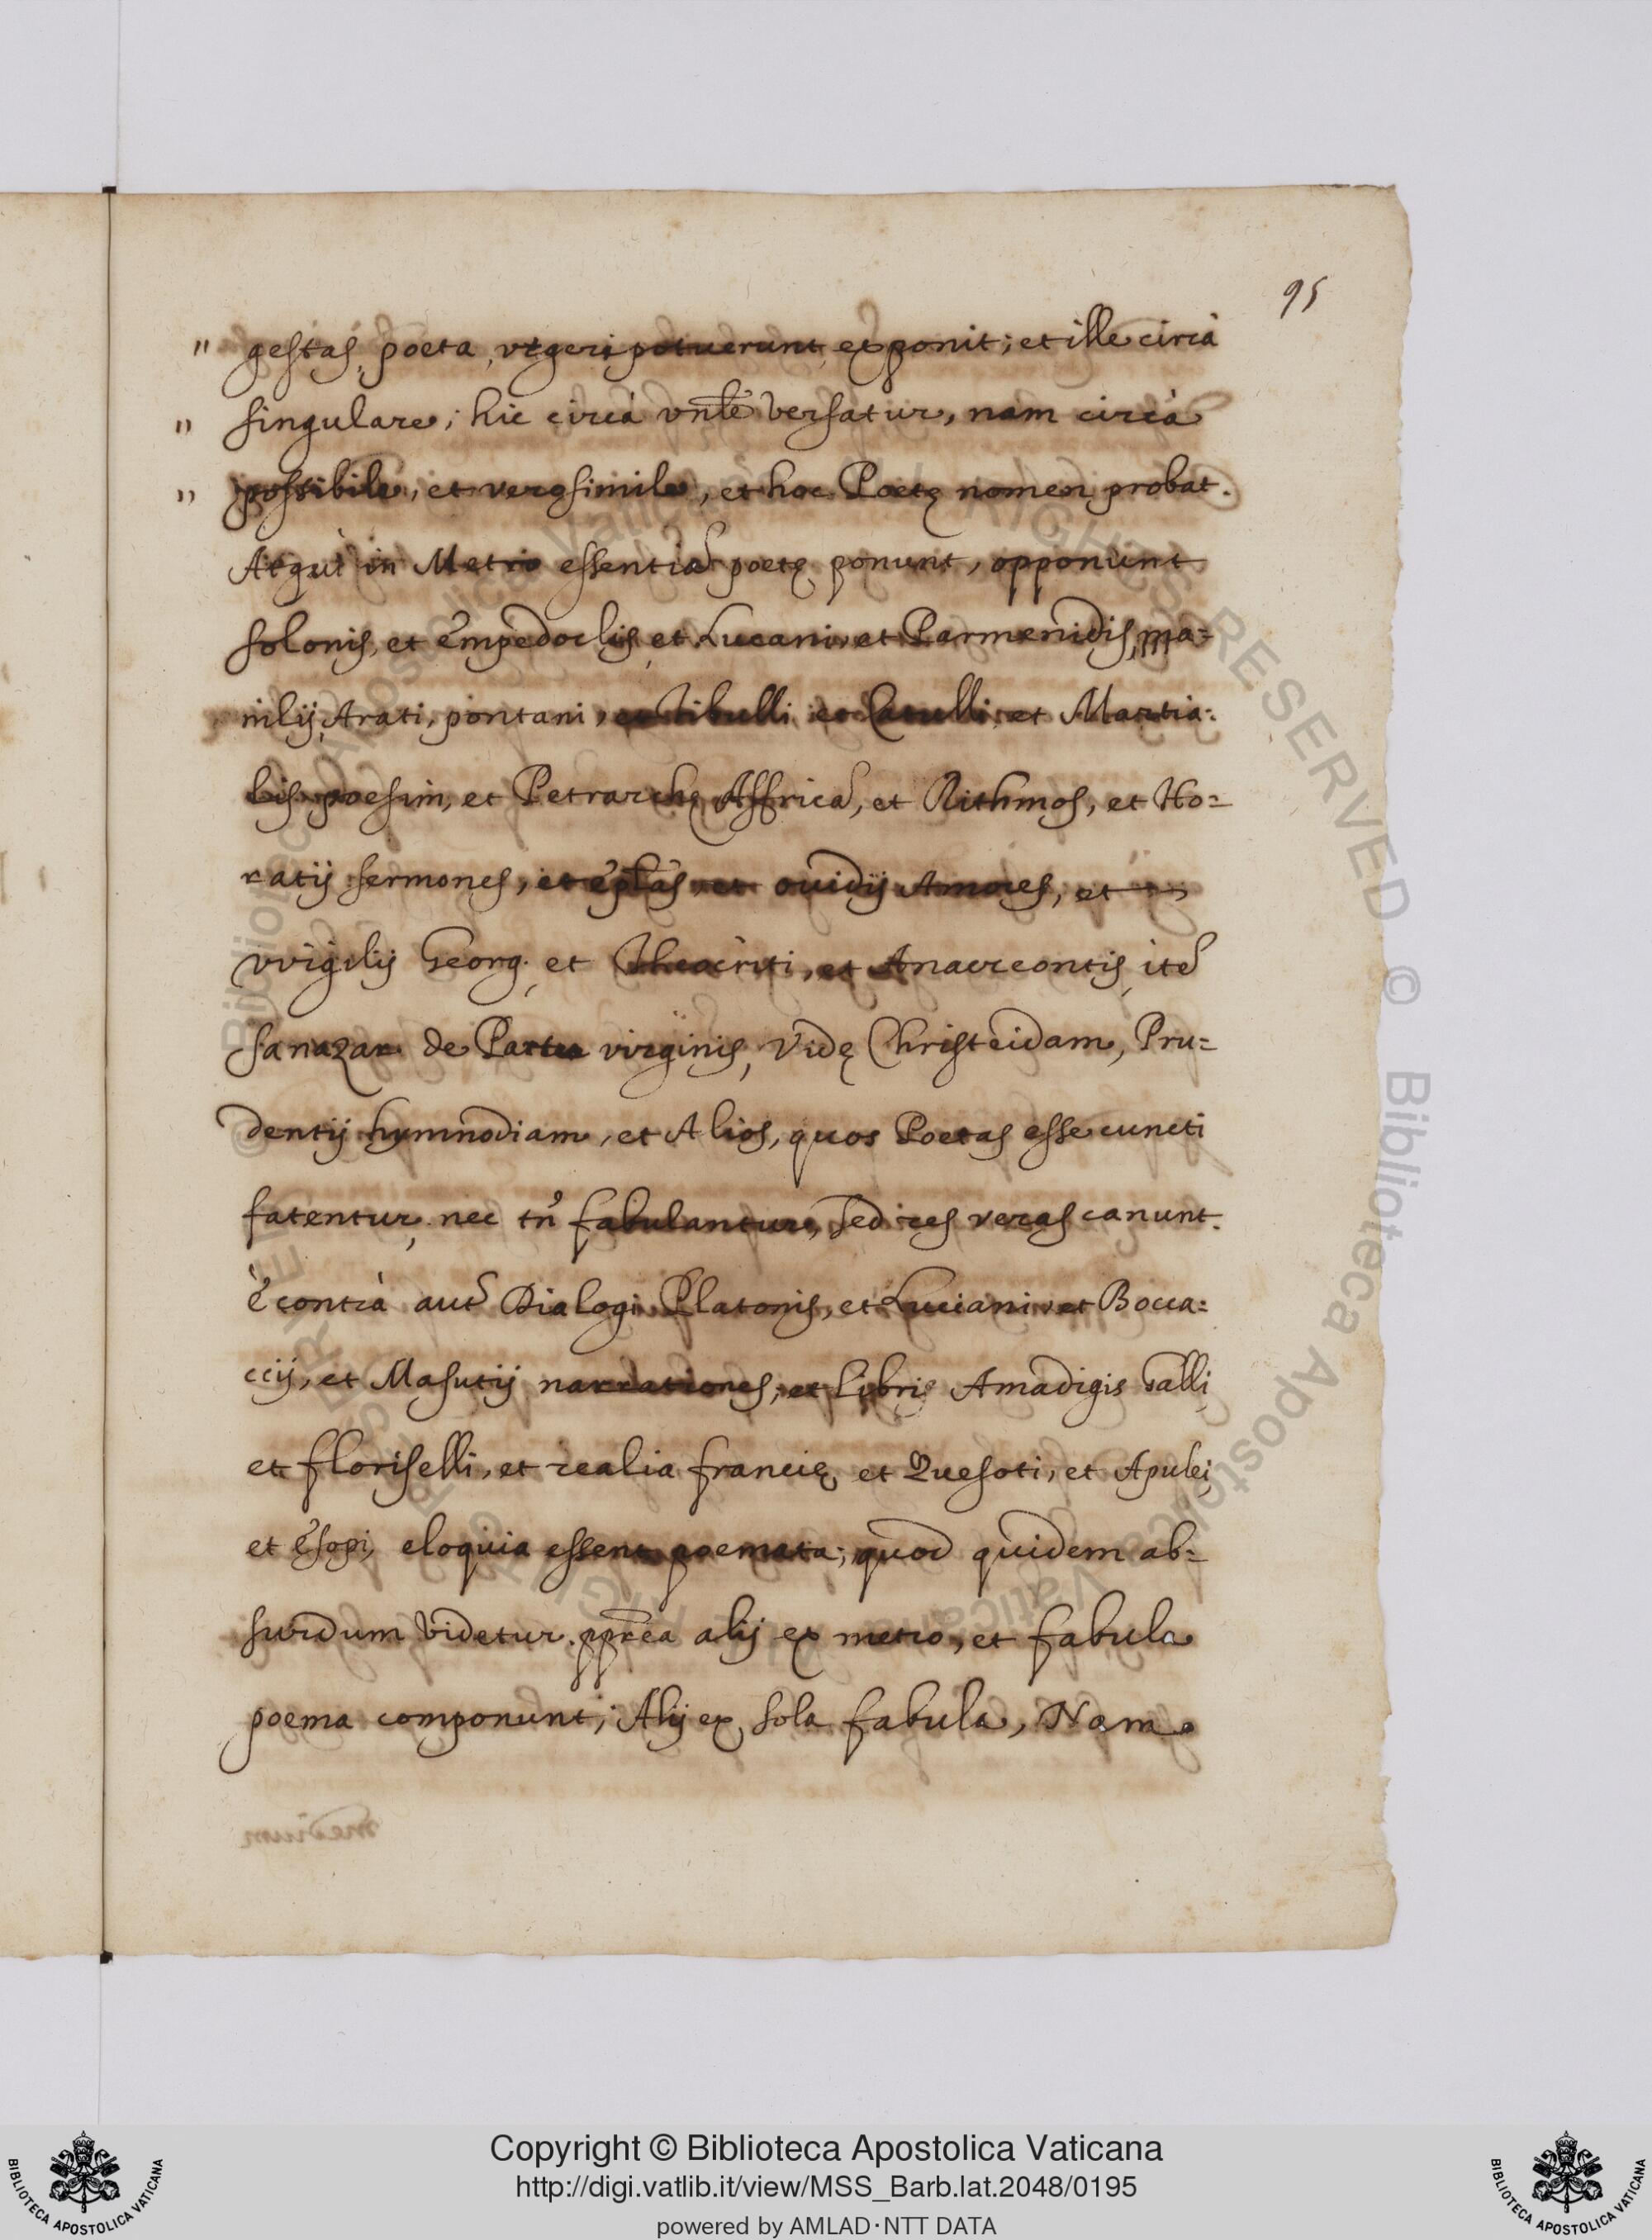 95
" gestas, poeta, vt geri potuerunt exponit; et ille circà
" singulare; hic circà vnłe versatur, nam circà
" possibile, et verosimile, et hoc Poetę nomen probat.
Atqui in Metro essentiā poetę ponunt, opponunt
Solonis, et Empedoclis, et Lucani, et Parmenidis, Ma=
nilij, Arati, pontani, et Tibulli, et Catulli, et Martia=
lis poesim, et Petrarchę Affricā, et Rithmos, et Ho=
ratij sermones, et ep̄las, et ouidij Amores, et
virgilij Georg. et Theocriti, et Anacreontis, itē
Sanazar. de Partu virginis, Vidę Christeidam, Pru=
dentij hymnodiam, et Alios, quos Poetas esse cuncti
fatentur, nec tn̄ fabulantur, sed res veras canunt.
è contrà aut̄ Dialogi Platonis, et Luciani, et Bocca=
ccij, et Masutij narrationes, et Libri Amadigis Galli
et floriselli, et realia francię, et Quesoti, et Apulei,
et Esopi, eloquia essent poemata; quod quidem ab=
surdum videtur. pp̄rea alij ex metro, et fabula
poema componunt; Alij ex sola fabula, Nam
medium
© Biblioteca Apostolica Vaticana ALL RIGHTS RESERVED © Biblioteca Apostolica Vaticana ALL RIGHTS RESERVED
Copyright © Biblioteca Apostolica Vaticana
http://digi.vatlib.it/view/MSS_Barb.lat.2048/0195
powered by AMLAD·NTT DATA
BIBLIOTECA APOSTOLICA VATICANA
BIBLIOTECA APOSTOLICA VATICANA